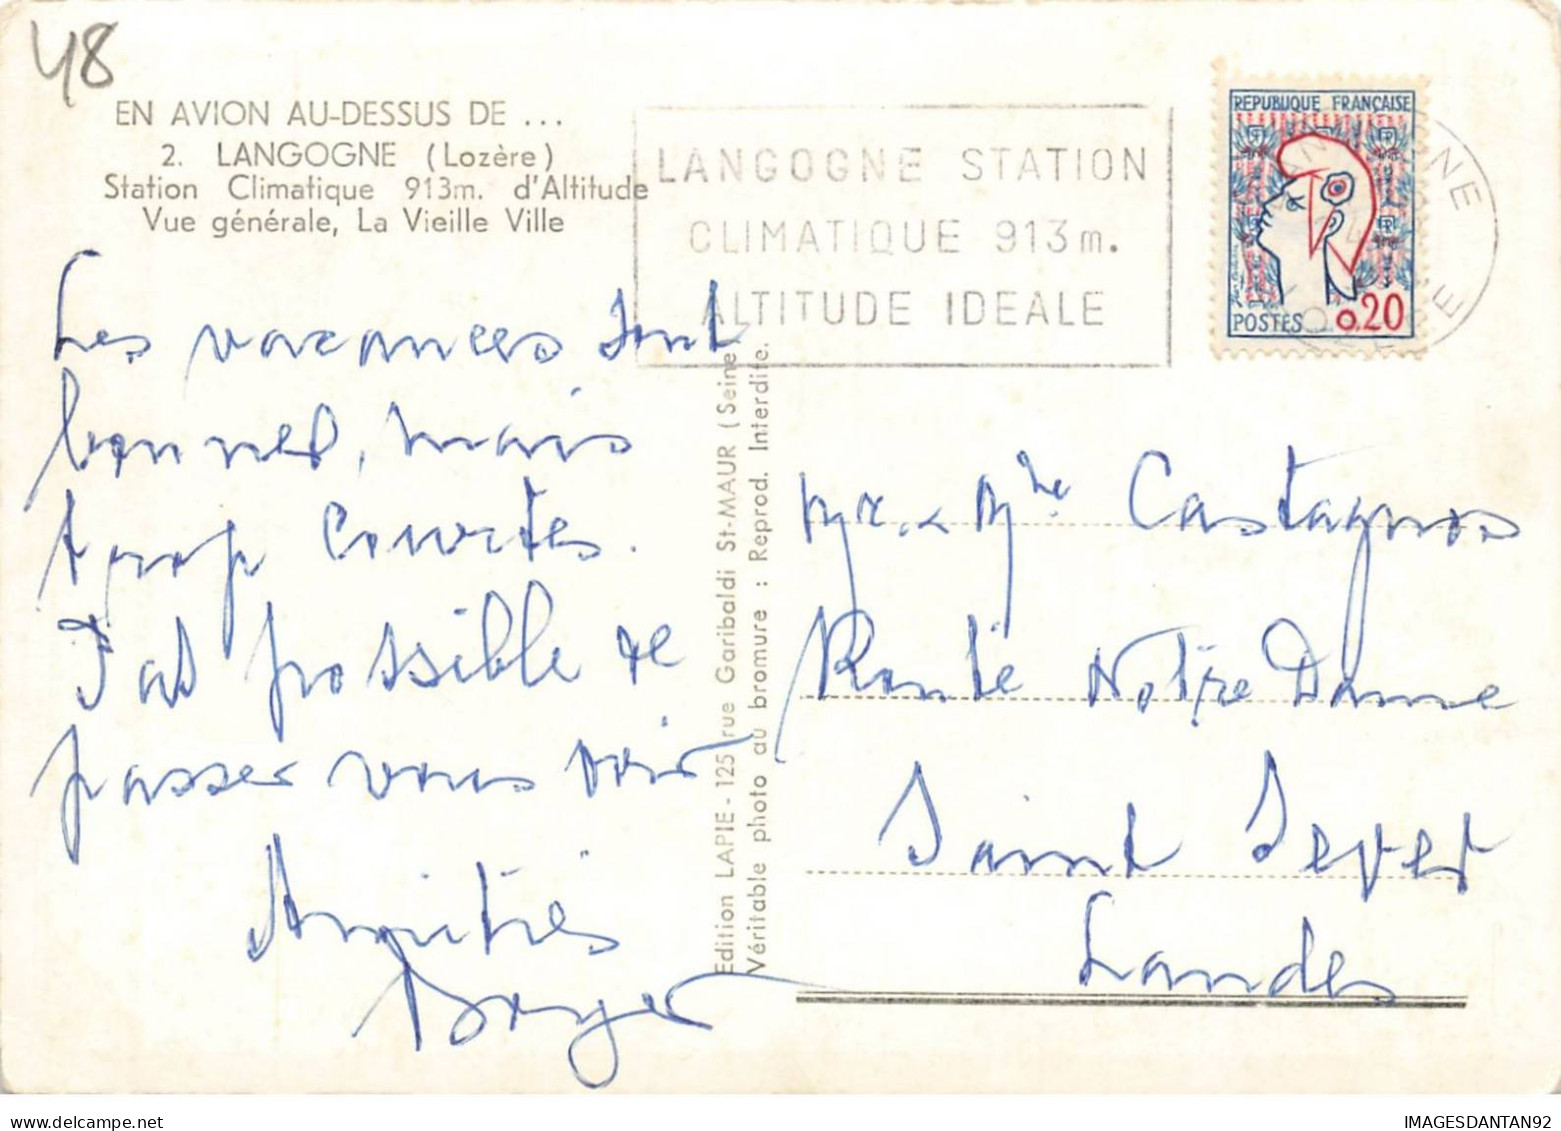 48
EN AVION AU-DESSUS DE ...
2. LANGOGNE (Lozère)
Station Climatique 913m. d'Altitude
Vue générale, La Vieille Ville
LANGOGNE STATION
CLIMATIQUE 913m.
ALTITUDE IDEALE
REPUBLIQUE FRANÇAISE
POSTES 0.20
Les vacances sont
bonnes, mais
trop courtes.
Pas possible de
passer vous voir
Amitiés
Boyer
Edition LAPIE - 125 rue Garibaldi St-MAUR (Seine
Véritable photo au bromure : Reprod. Interdite.
Mr. & Mme Castagnos
Route Notre Dame
Saint Sever
Landes
IMAGESDANTAN92